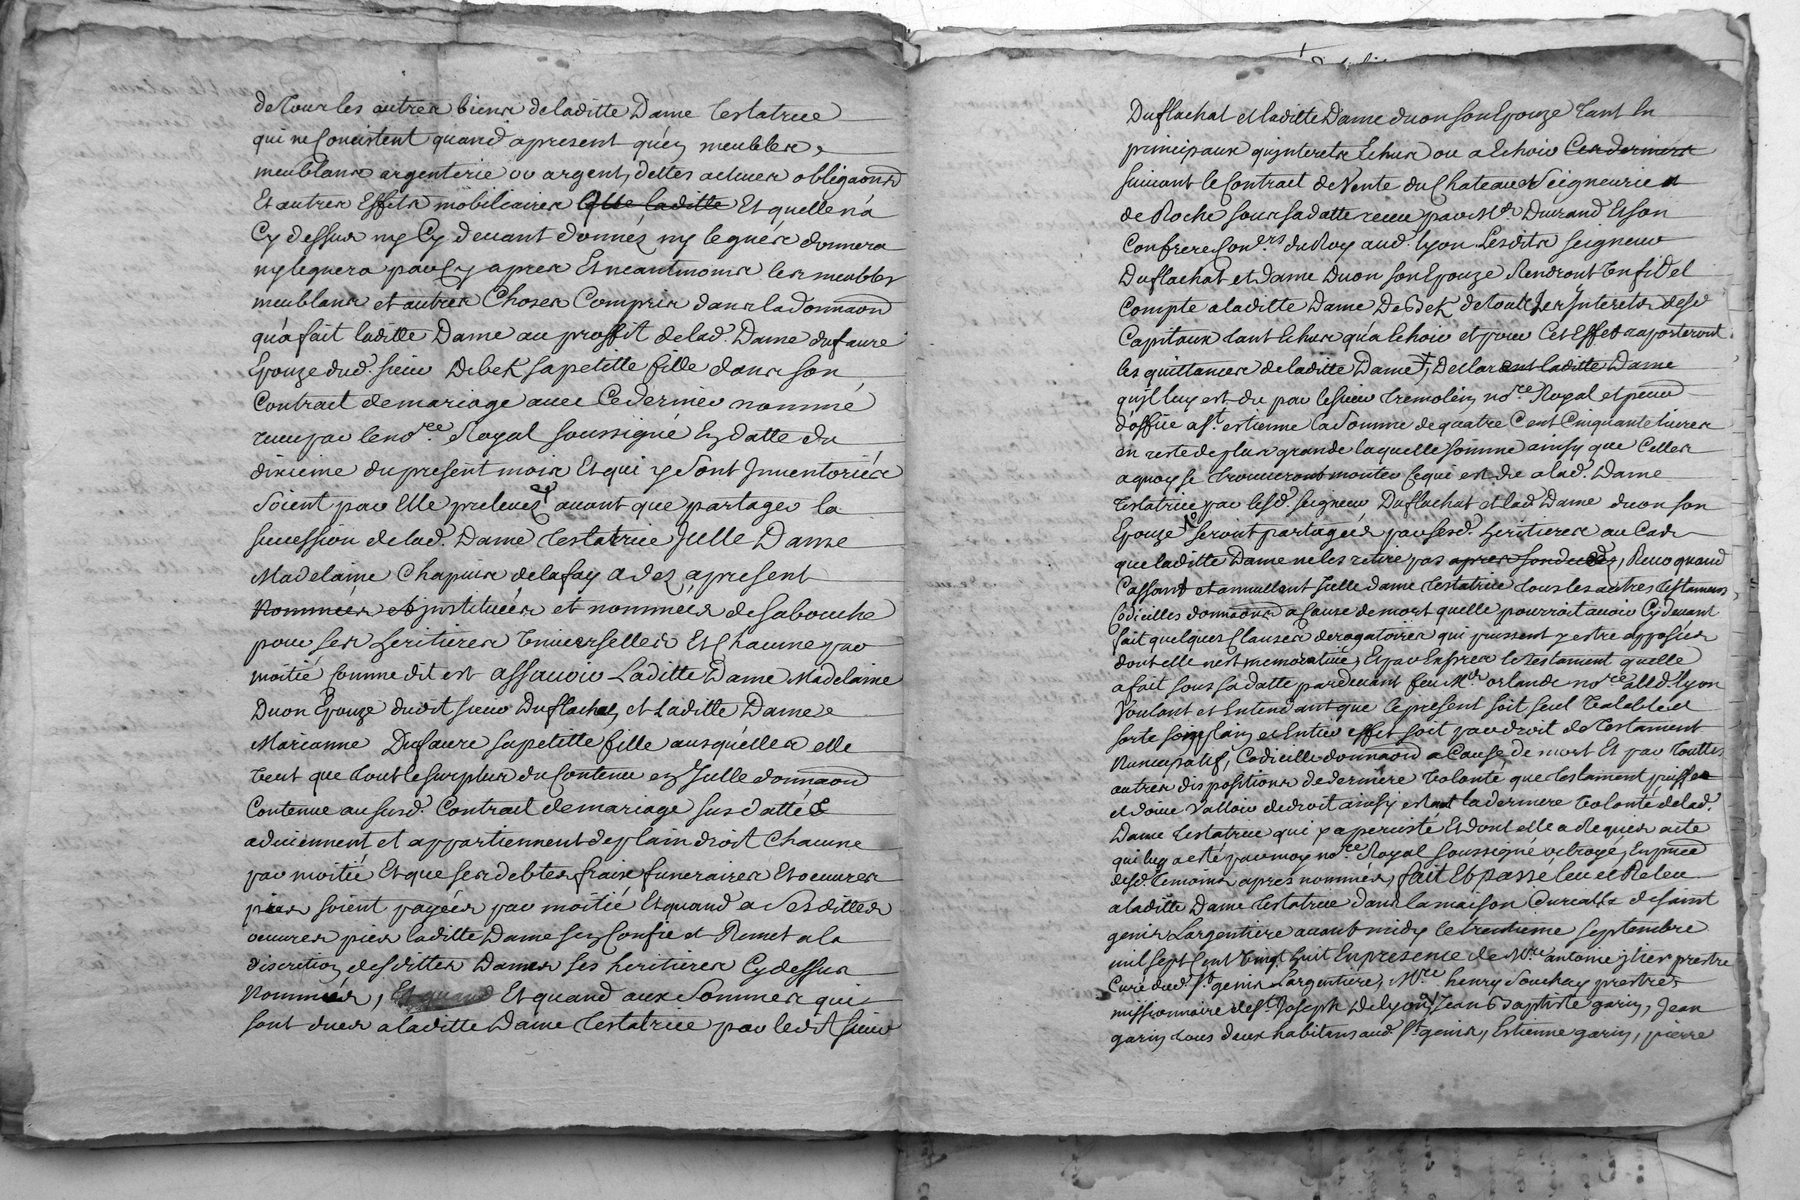 de tous les autres biens de laditte Dame testatrice
qui ne Consistent quand apresent qu'en meubles,
meublans argenterie ou argent, dettes actives obligaons
Et autres Effets mobiliaires Et quelle n'a
Cy dessus ny Cy devant donnéz ny leguéz donnera
ny leguera par Cy apres Et neantmoins les meubles
meublans et autres Choses Compris dans la donnaon
qu'a fait laditte Dame au proffit de lad. Dame dufaure
Epouze dud. sieur Debek sa petitte fille dans son
Contract de mariage avec Ce dernier nommé
receu par le no.re Royal soussigné En datte du
dixieme du present mois Et qui y sont Inventoriés
soient par Elle prelevez avant que partager la
succession de lad. Dame testatrice Jcelle Dame
Madelaine Chapuis de lafay a dez apresent
instituées et nommées de sa bouche
pour ses heritieres Universelles Et Chacune par
moitié comme dit est assavoir Laditte Dame Madelaine
Duon Epouze dudit sieur Duflachat, et Laditte Dame
Marianne Dufaure sa petitte fille ausquelles elle
veut que tout le surplus du Contenu en Jcelle donnaon
Contenue au susd. Contract de mariage sus datté
adviennent et appartiennent de plain droit Chacune
par moitié Et que ses debtes fraix funeraires Et oeuvres
pies soient payées par moitié Et quand a Sesdittes
oeuvres pies laditte Dame s'en Confie et Remet a la
discretion desdittes Dames ses heritieres Cy dessus
Nommées, Et quand aux Sommes qui
sont dues a laditte Dame testatrice par ledit sieur
Duflachat et laditte Dame duon son Epouze tant En
principaux qu'interets Echus ou a Echoir Ces derniers
suivant le Contract de Vente du Chateau et Seigneurie
de Roche sous sa datte receu par M.e Durand Et son
Confrere Con.ers du Roy aud. Lyon Lesdits seigneur
Duflachat et Dame Duon son Epouze Rendront Un fidel
Compte a laditte Dame De Bek de tout les Interets desd
Capitaux tant Echus qu'a Echoir et pour Cet Effet raporteront
les quittances de laditte Dame, Declarant laditte Dame
qu'il luy est du par le sieur tremolin no.re Royal et
d'office a S.t estienne la somme de quatre Cent Cinquante livres
en reste de plus grande laquelle somme ainsy que Celles
a quoy se trouveront monter Ce qui est du a lad. Dame
testatrice par lesd. seigneur Duflachat et lad. Dame duon son
Epouze seront partagées par sesd. heritieres au Cas
que laditte Dame ne les retire pas, Revoquand
Cassant et annullant Jcelle dame testatrice tous les autres testamens,
Codicilles donnaons a Cause de mort quelle pourroit avoir Cy devant
fait quelques Clauses derogatoires qui pussent y estre apposées
dont elle n'est memorative, Et par Exprez le testament quelle
a fait sous sa datte pardevant feu M.e orlande no.re aud. Lyon
Voulant et Entendant que le present soit seul Valable et
sorte son plain et Entier effet soit par droit de testament
Nuncupatif, Codicille donnaon a Cause de mort Et par touttes
autres dispositions de derniere volonté que testament puisse
et doive valloir de droit ainsy est la derniere volonté de lad.
Dame testatrice qui y a persisté Et dont elle a Requis acte
qui luy a eté par moy no.re Royal soussigné octroyé, En pnce
desd. temoins apres nommés, fait Et passé leu et Releu
a laditte Dame testatrice dans la maison Curialle de saint
genis Largentiere avant midy le trentieme septembre
mil sept Cent Vingt huit En presence de M.re antoine prestre
Curé dud. S.t genis Largentiere, M.re henry Souchay prestre
missionnaire de S.t Joseph De Lyon, Jean Baptiste garin, Jean
garin tous deux habitans aud. S.t genis, Estienne garin, pierre